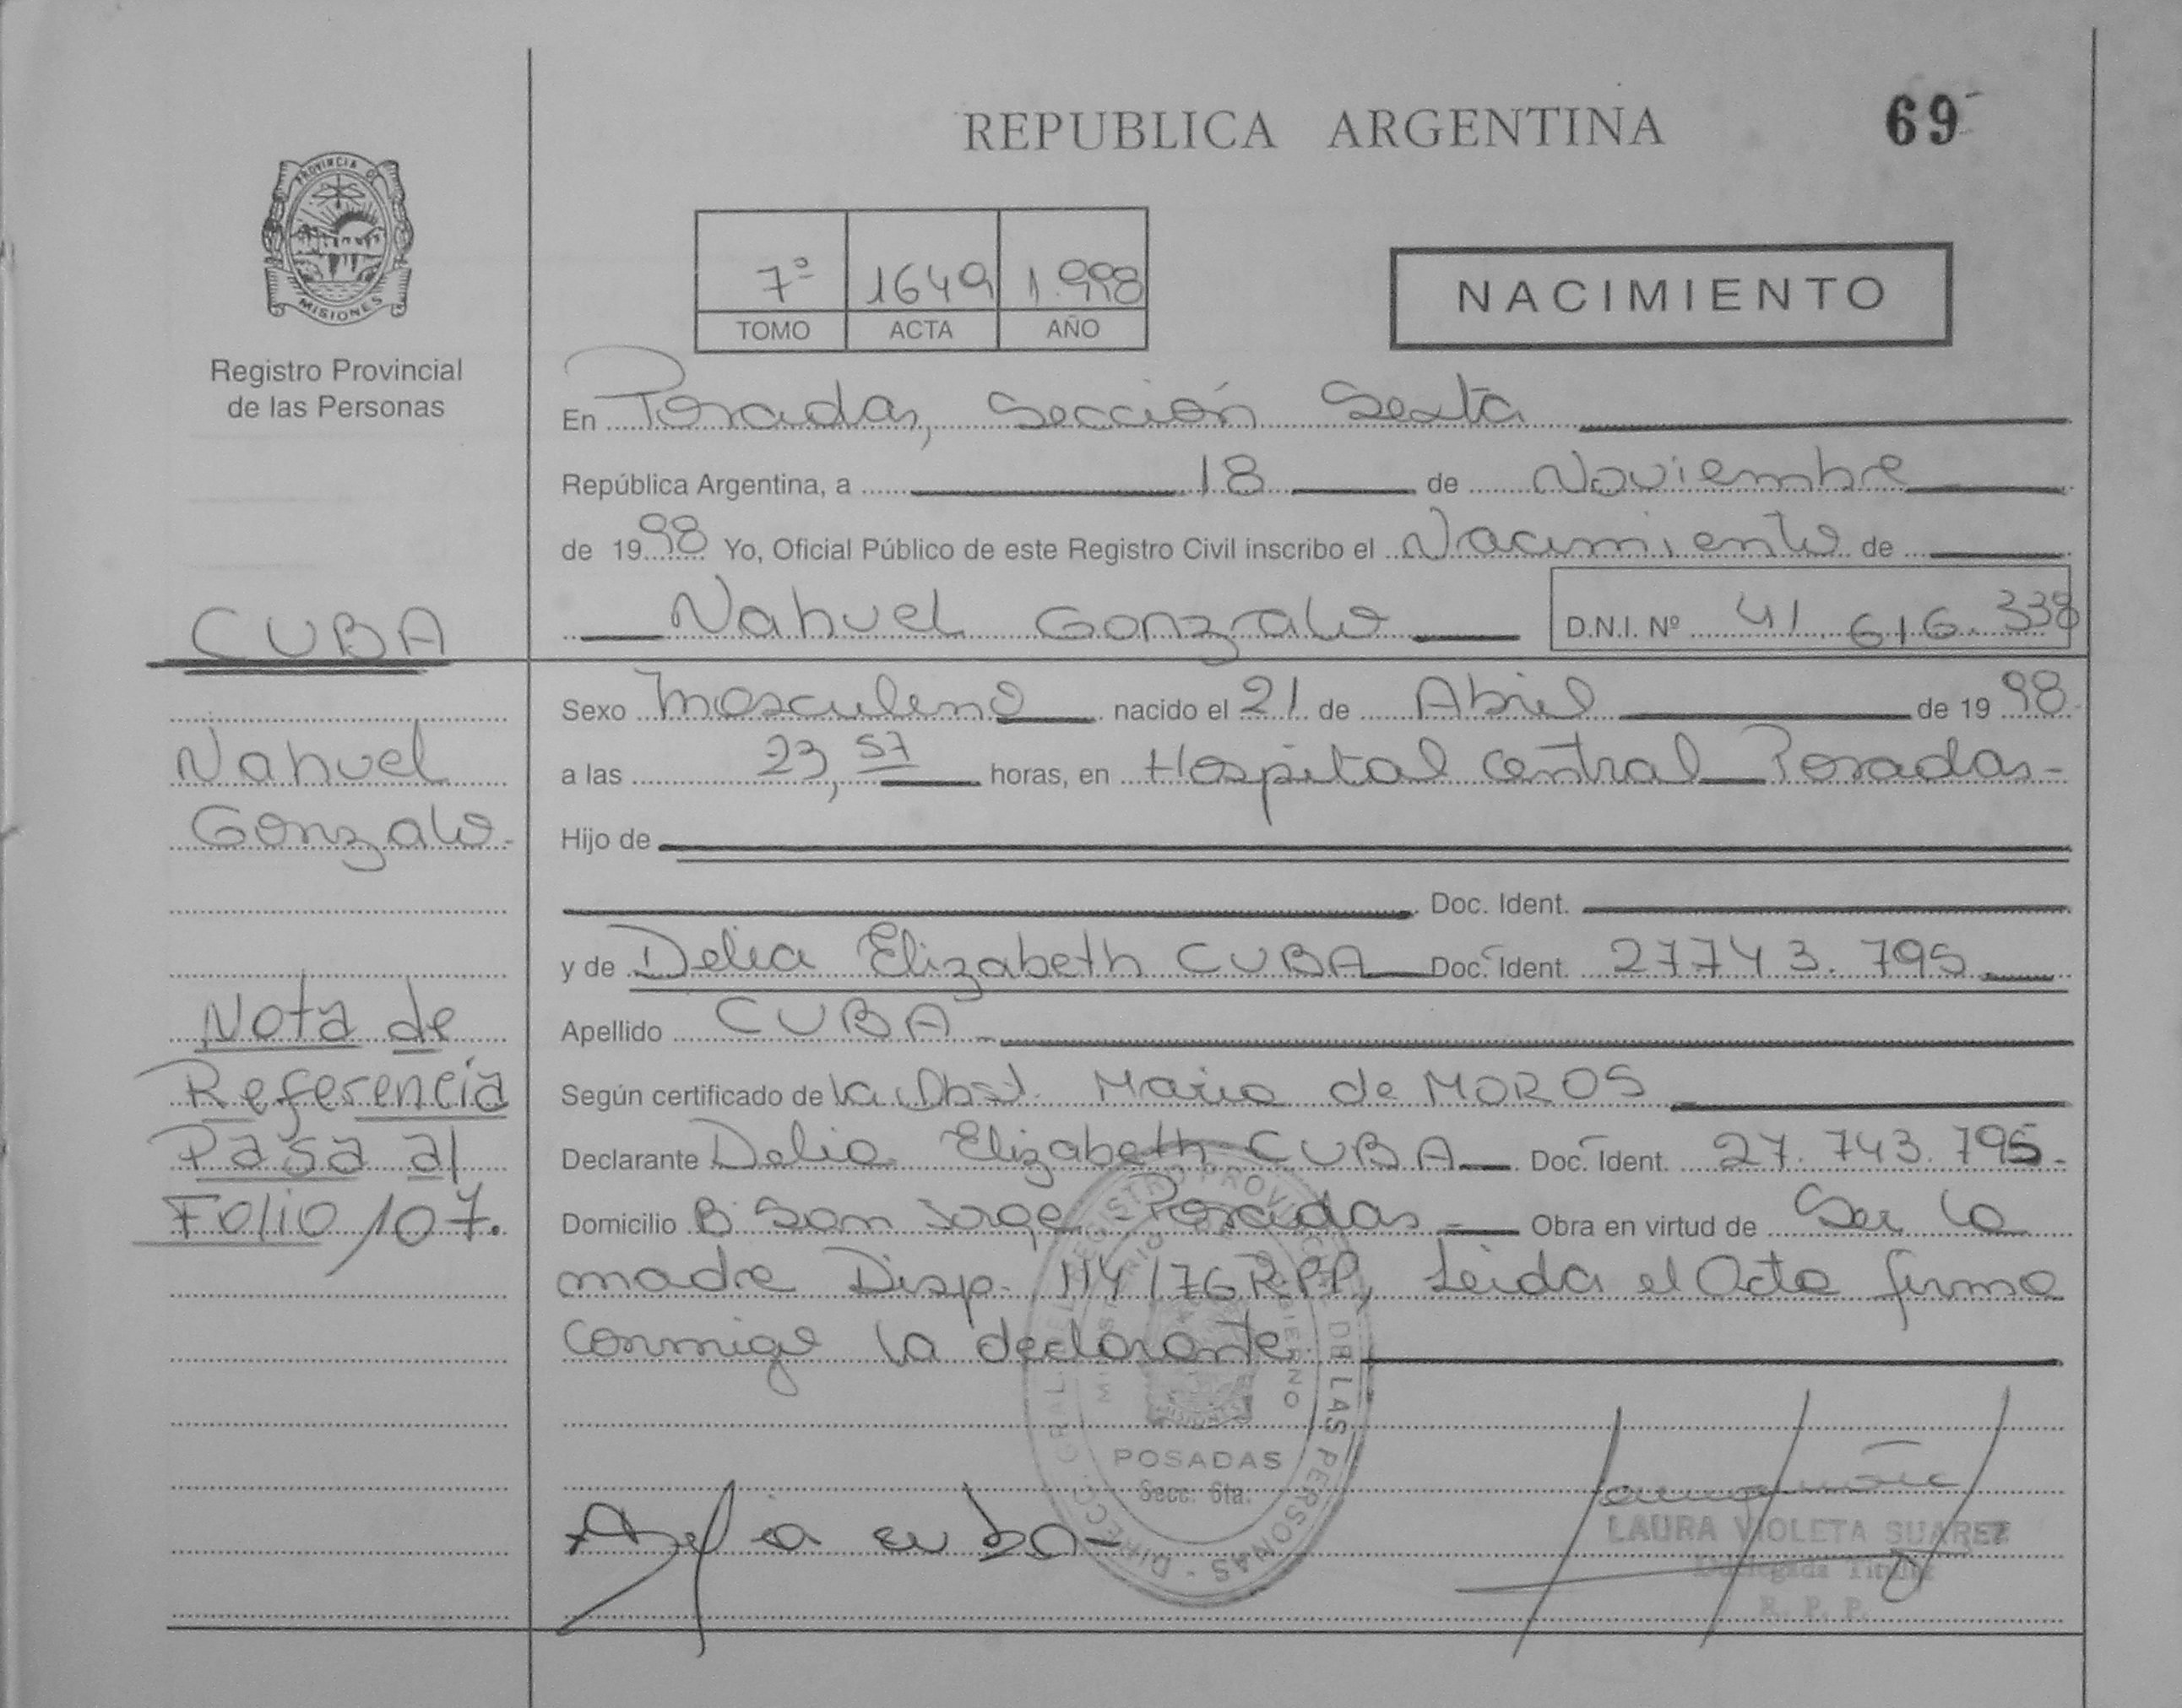 REPUBLICA ARGENTINA
69
PROVINCIA DE
MISIONES
Registro Provincial
de las Personas
7º 1649 1.998
TOMO ACTA AÑO
NACIMIENTO
En Posadas, Sección Sexta
República Argentina, a 18 de Noviembre
de 1998 Yo, Oficial Público de este Registro Civil inscribo el Nacimiento de
CUBA
Nahuel Gonzalo D.N.I. Nº 41.616.338
Sexo Masculino nacido el 21 de Abril de 1998.
Nahuel
a las 23,57 horas, en Hospital Central Posadas-
Gonzalo-
Hijo de
Doc. Ident.
y de Delia Elizabeth CUBA Doc. Ident. 27743.795
Nota de
Apellido CUBA
Referencia
Según certificado de la Obst. Maria de MOROS
Pasa al
Declarante Delia Elizabeth CUBA Doc. Ident. 27.743.795.
Folio 107.
Domicilio B. San Jorge - Posadas - Obra en virtud de Ser la
madre Disp. 114/76 R.P.P, Leida el Acta firma
conmigo la declarante
DIRECC. GRAL. DEL REGISTRO PROVINCIAL DE LAS PERSONAS
POSADAS
Secc. 6ta.
Delia cuba
LAURA VIOLETA SUAREZ
Delegada Titular
R. P. P.